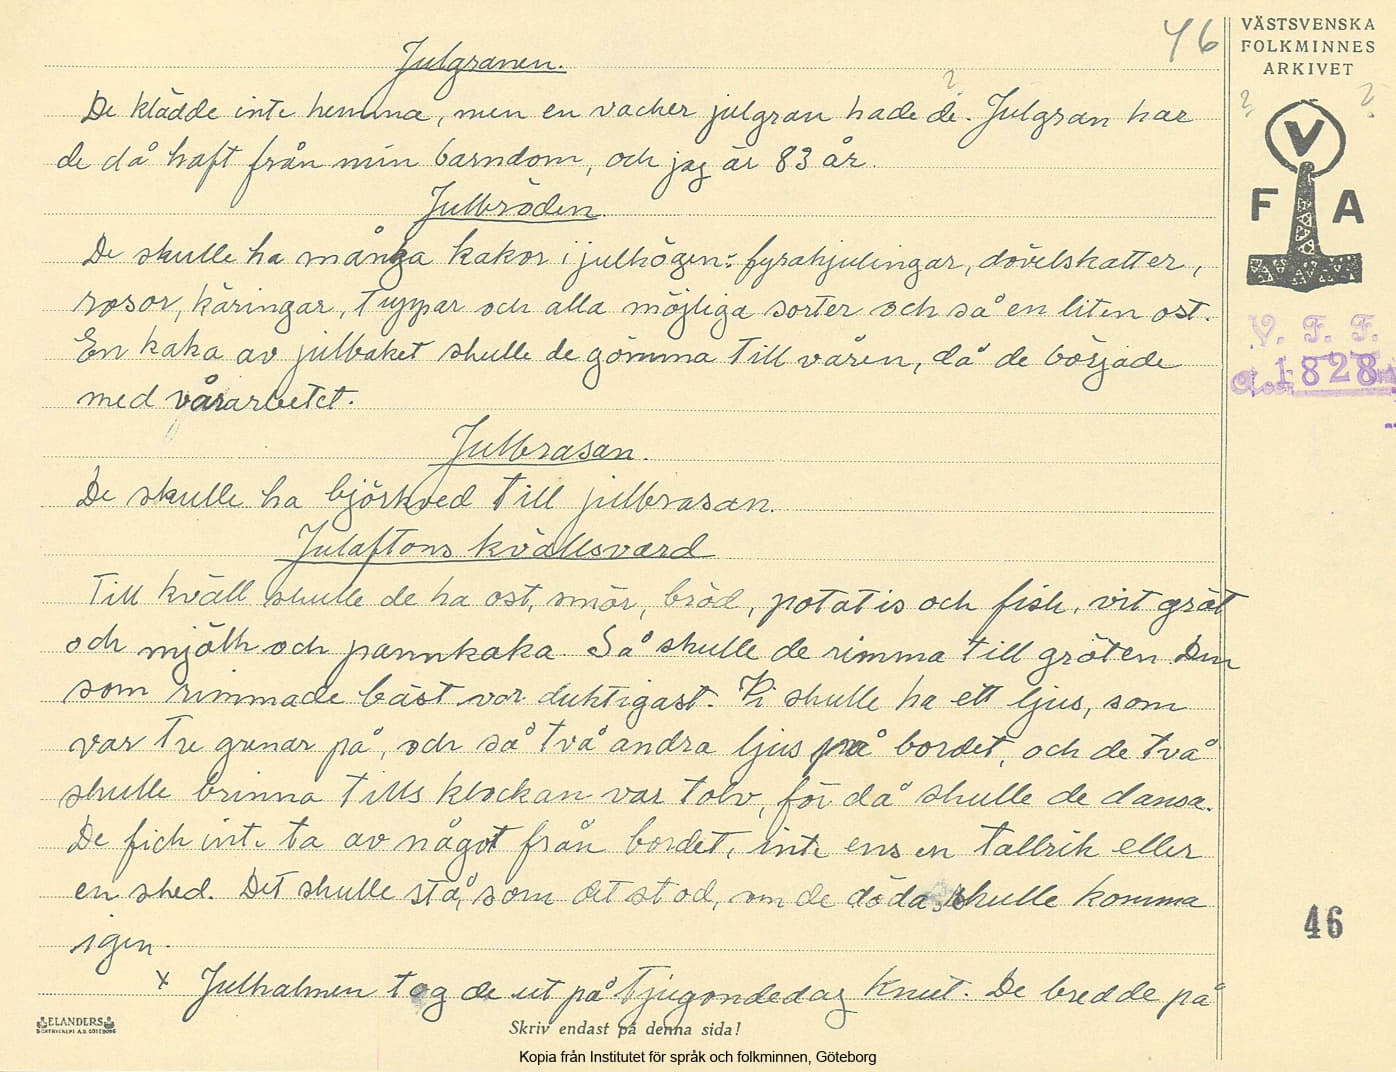 46
VÄSTSVENSKA
FOLKMINNES
ARKIVET
F V A
V. F. F.
1828
Julgranen.
De klädde inte hemma, men en vacker julgran hade de. Julgran har
de då haft från min barndom, och jag är 83 år.
Julbröden.
De skulle ha många kakor i julhögen: fyrahjulingar, dövelskatter,
rosor, käringar, tuppar och alla möjliga sorter och så en liten ost.
En kaka av julbaket skulle de gömma till våren, då de började
med vårarbetet.
Julbrasan.
De skulle ha björkved till julbrasan.
Julaftons kvällsvard
Till kväll skulle de ha ost, smör, bröd, potatis och fisk, vit gröt
och mjölk och pannkaka. Så skulle de rimma till gröten. Den
som rimmade bäst var duktigast. Vi skulle ha ett ljus, som
var tre grenar på, och så två andra ljus på bordet, och de två
skulle brinna tills klockan var tolv, för då skulle de dansa.
De fick inte ta av något från bordet, inte ens en tallrik eller
en sked. Det skulle stå, som det stod, om de döda skulle komma
igen.
x Julhalmen tog de ut på Tjugondedag Knut. De bredde på
46
ELANDERS
BOKTRYCKERI A.B. GÖTEBORG
Skriv endast på denna sida!
Kopia från Institutet för språk och folkminnen, Göteborg